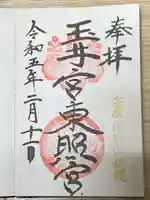 奉拝
玉井宮東照宮
令和五年二月十一日